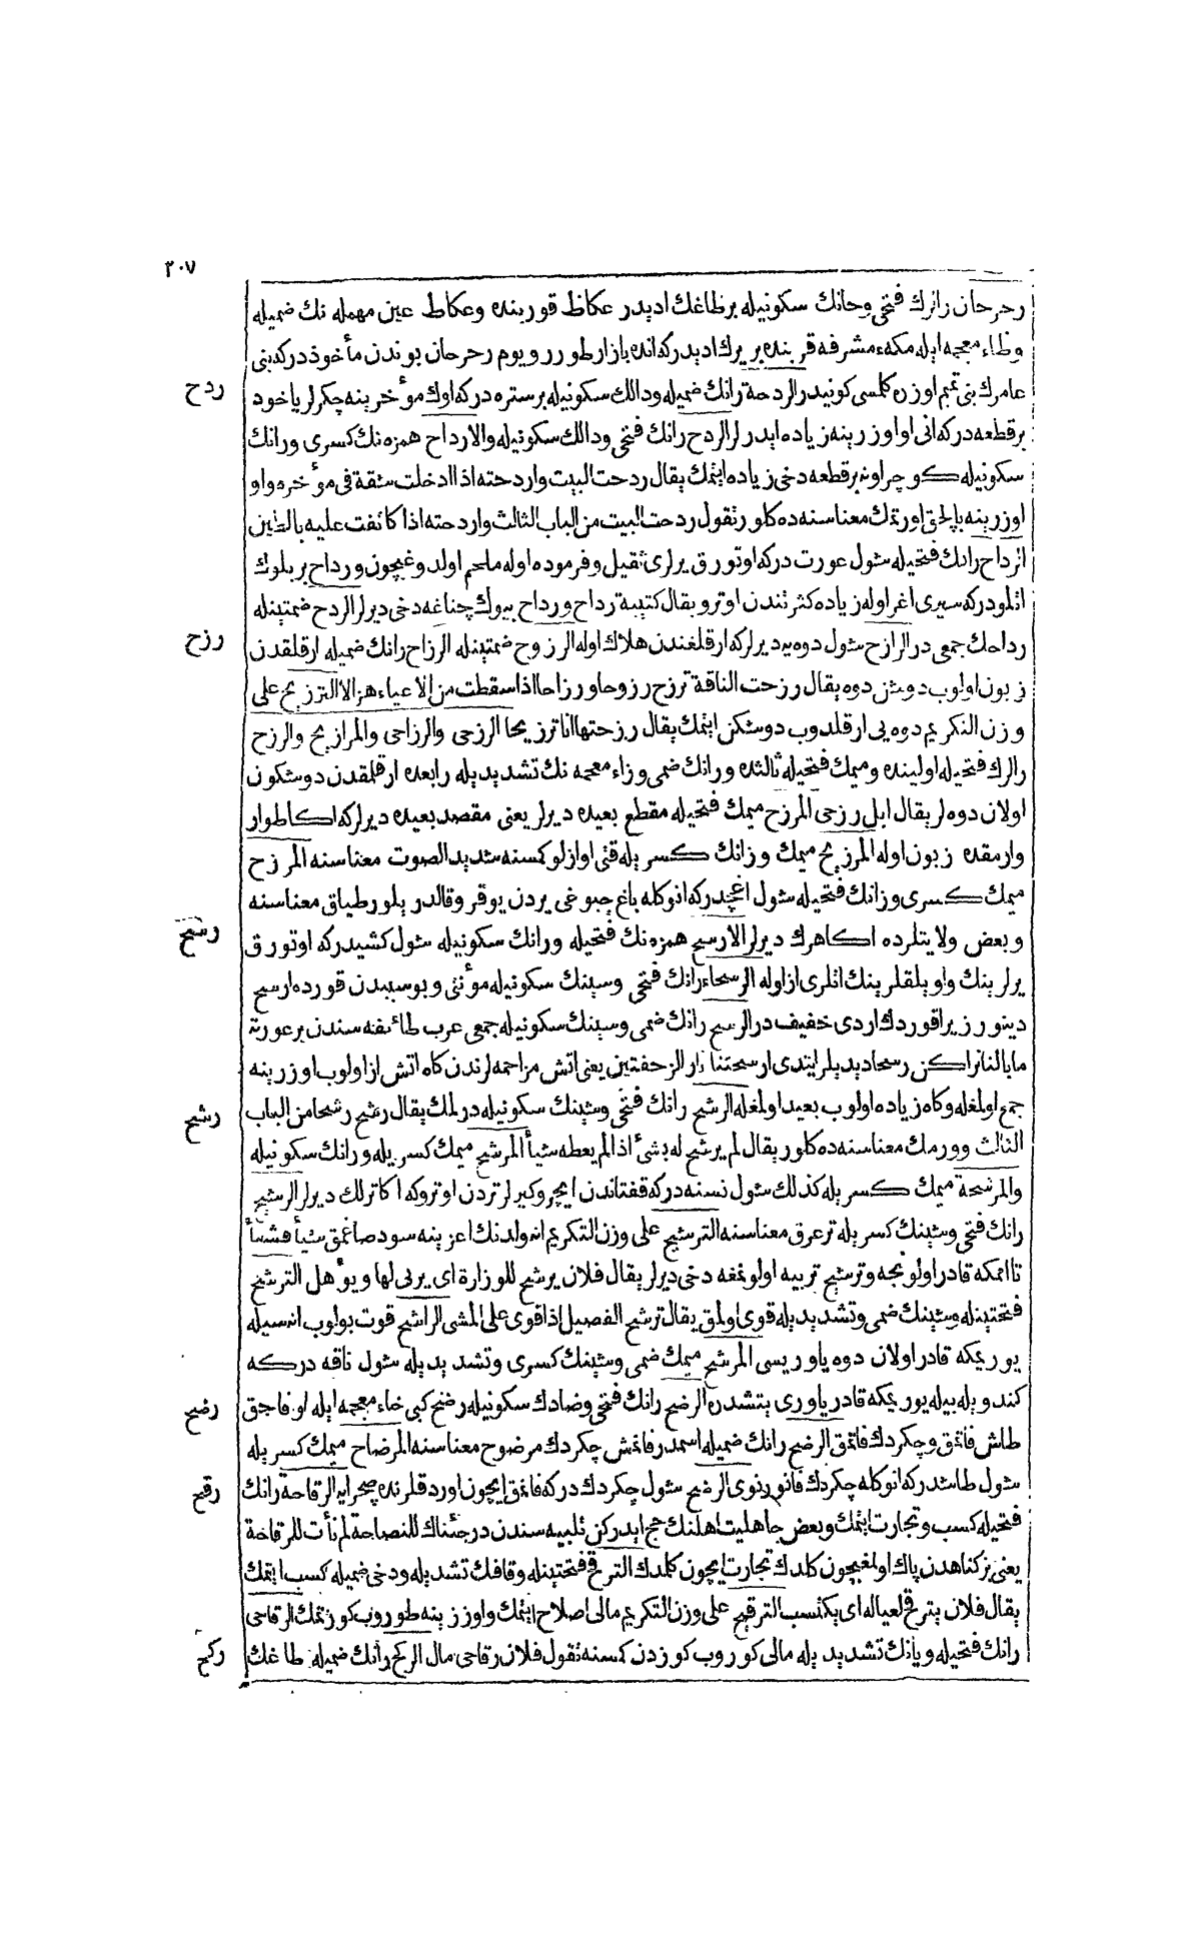 ٢٠٧
رحرحان رانك فتحى وحانك سكونيله بر طاغك اديدر عكاظ قوربنده وعكاظ عين مهمله نك ضميله
وظاء معجمه ايله مكهء مشرفه قربنده بر يرك اديدر كه انده بازار طورر ويوم رحرحان بوندن مأخوذدر كه بنى
عامرك بنى تميم اوزره كلمسى كونيدر الردحة رانك ضميله ودالك سكونيله بر ستره در كه اوك مؤخرينه چكرلر ياخود
ردح
بر قطعه در كه انى اواوزرينه زياده ايدرلر الردح رانك فتحى ودالك سكونيله والارداح همزه نك كسرى ورانك
سكونيله كوچراونه بر قطعه دخى زياده ايتمك يقال ردحت البيت واردحته اذا ادخلت شقة فى مؤخره واو
اوزرينه بالچق اورتمك معناسنه ده كلور تقول ردحت البيت من الباب الثالث واردحته اذا كاثفت عليه بالطين
الرداح رانك فتحيله شول عورت در كه اوتورق يرلرى ثقيل وفرموده اوله ملحم اولدوغيچون ورداح بر بلوك
اتلودر كه سيرى اغر اوله زياده كثرتندن اوترو يقال كتيبة رداح ورداح بيوك چناغه دخى ديرلر الردح ضمتينله
رداحك جمعى در الرازح شول دوه يه ديرلر كه ارقلغندن هلاك اوله الرزوح ضمتينله الرزاح رانك ضميله ارقلقدن
رزح
زبون اولوب دوشن دوه يقال رزحت الناقة ترزح رزوحا ورزاحا اذا سقطت من الاعياء هزالا الترزيح على
وزن التكريم دوه يى ارقلدوب دوشكن ايتمك يقال رزحتها انا ترزيحا الرزحى والرزاحى والمرازيح والرزح
رالرك فتحيله اولينده وميمك فتحيله ثالثده ورانك ضمى وزاء معجمه نك تشديديله رابعده ارقلقدن دوشكون
اولان دوه لر يقال ابل رزحى المرزح ميمك فتحيله مقطع بعيده ديرلر يعنى مقصد بعيده ديرلر كه اكا طوار
وارمقده زبون اوله المرزيح ميمك وزانك كسريله قتى اوازلو كسنه شديد الصوت معناسنه المرزح
ميمك كسرى وزانك فتحيله شول اغچدر كه انوكله باغ چبوغى يردن يوقرو قالدريلور طياق معناسنه
وبعض ولايتلرده اكاهرك ديرلر الارسح همزه نك فتحيله ورانك سكونيله شول كشيدر كه اوتورق
رسح
يرلرينك واويلقلرينك اتلرى ازاوله الرسحاء رانك فتحى وسينك سكونيله مؤنثى وبوسببدن قورده ارسح
دينور زيرا قوردك اردى خفيف در الرسح رانك ضمى وسينك سكونيله جمعى عرب طائفه سندن بر عورته
ما بالنا نراكن رسحا ديديلر ايتدى ارسحتنا نار الزحفتين يعنى اتش مزاحمه لرندن كاه اتش ازاولوب اوزرينه
جمع اولمغله وكاه زياده اولوب بعيد اولمغله الرشح رانك فتحى وشينك سكونيله درلمك يقال رشح رشحا من الباب
رشح
الثالث وورمك معناسنه ده كلور يقال لم يرشح له بشئ اذا لم يعطه شيأ المرشح ميمك كسريله ورانك سكونيله
والمرشحة ميمك كسريله كذلك شول نسنه در كه قفتاندن ايچرو كيرلر تردن اوترو كه اكا ترلك ديرلر الرشيح
رانك فتحى وشينك كسريله تر عرق معناسنه الترشيح على وزن التكريم انه ولدنك اغزينه سود صاغمق شيأ فشيأ
تا اممكه قادر اولونجه وترشيح تربيه اولونمغه دخى ديرلر يقال فلان يرشح للوزارة اى يربى لها ويؤهل الترشح
فتحتينله وشينك ضمى وتشديديله قوى اولمق يقال ترشح الفصيل اذا قوى على المشى الراشح قوت بولوب انه سيله
يوريمكه قادر اولان دوه ياوريسى المرشح ميمك ضمى وشينك كسرى وتشديديله شول ناقه در كه
كندويله بيله يوريمكه قادر ياورى يتشدره الرضح رانك فتحى وضادك سكونيله رضخ كبى خاء معجمه ايله اوفاجق
رضح
طاش قاتمق وچكردك قاتمق الرضح رانك ضميله اسمدر قاتمش چكردك مرضوح معناسنه المرضاح ميمك كسريله
شول طاشدر كه انوكله چكردك قاتورنوى الرضح شول چكردك در كه قاتمق ايچون اوردقلرنده صچرايه الرقاحة رانك
رقح
فتحيله كسب وتجارت ايتمك وبعض جاهليت اهلنك حج ايدركن تلبيه سندن در جئناك للنصاحة لم نأت للرقاحة
يعنى بز كناهدن پاك اولمغيچون كلدك تجارت ايچون كلمدك الترقح فتحتينله وقافك تشديديله ودخى ضميله كسب ايتمك
يقال فلان يترقح لعياله اى يكتسب الترقيح على وزن التكريم مالى اصلاح ايتمك واوزرينه طوروب كوزتمك الرقاحى
رانك فتحيله ويانك تشديديله مالى كوروب كوزدن كمسنه تقول فلان رقاحى مال الركح رانك ضميله طاغك
ركح